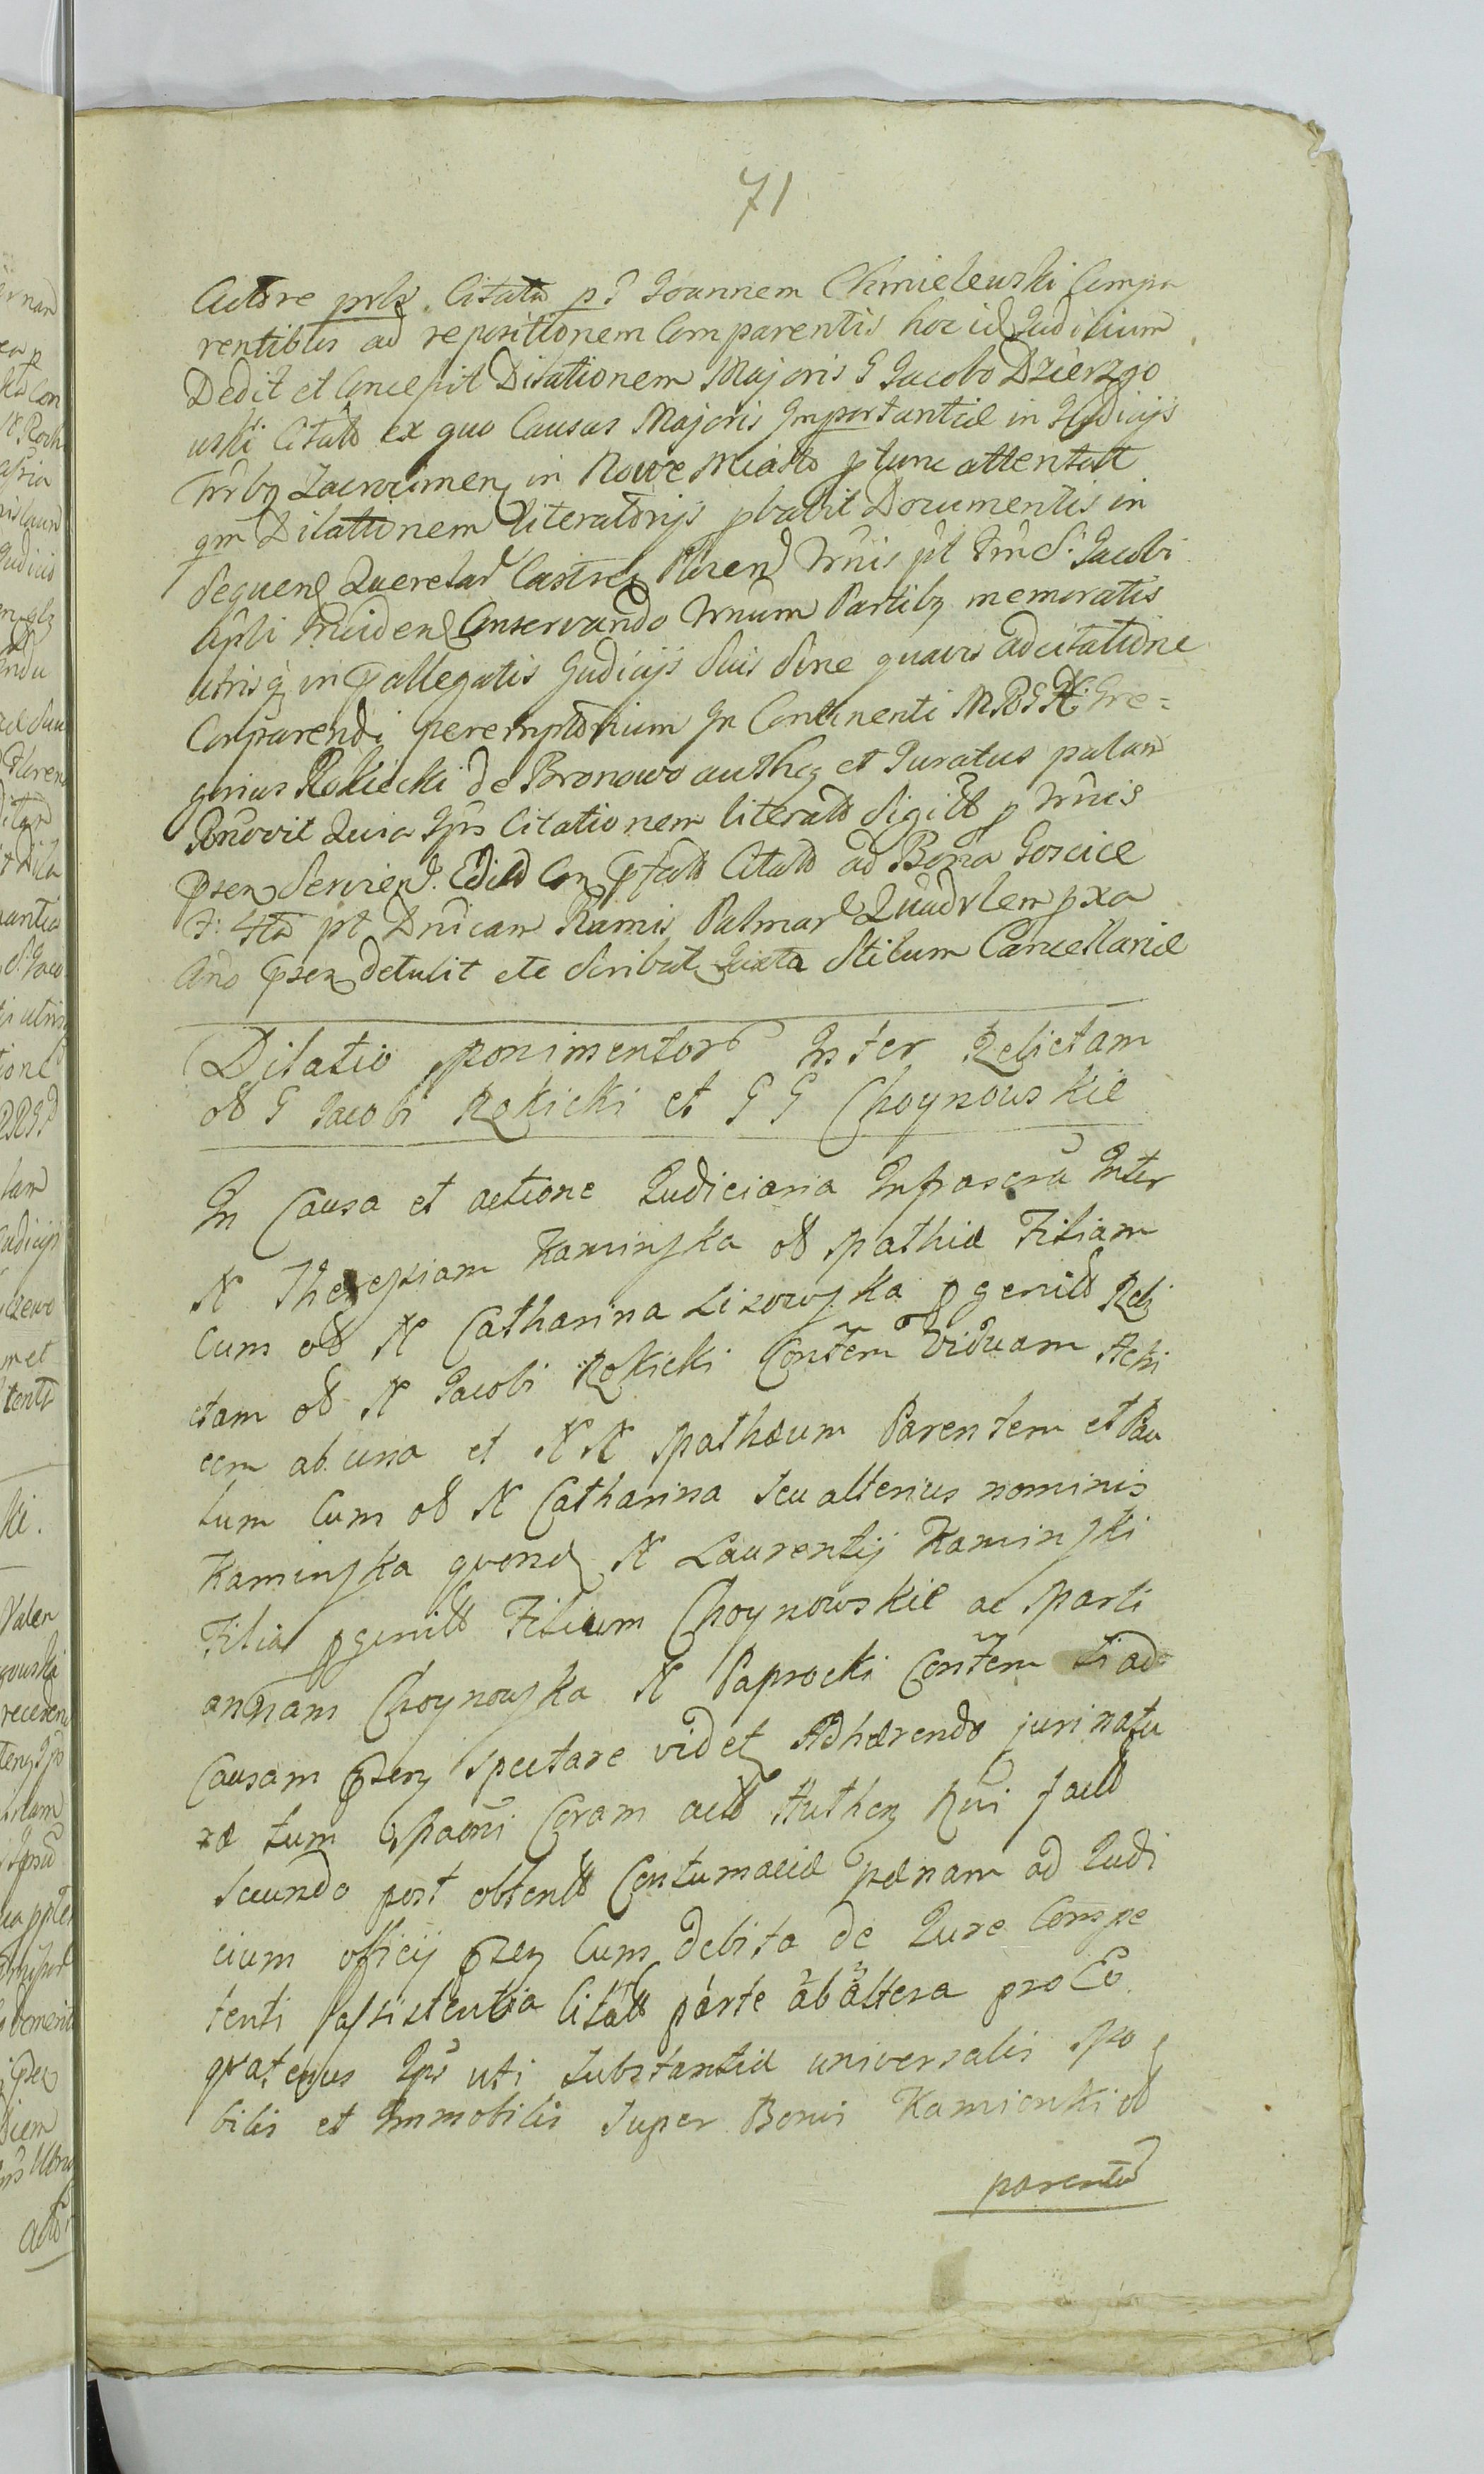 71
Actore prtz Citato p G Joannem Chmielewski Compa
rentibus ad repositionem Comparentis hoc id Judicium
Dedit et Concepit Dilationem Majoris G Jacobo Dzierzgo
wski Citato ex quo Causas Majoris Importantiæ in Judicijs
Trrbq Zacrocimen in Nowe Miasto ptunc attentatt
qm Dilationem literatorijs pbabit Documentis in
sequen Querelar Castren Plocen Trnis pt frm S. Jacobi
Apli Conservando Trnum Partibq memoratis
utrisq in pallegatis Judicijs Suis Sine quavis adcitatione
Comparendi peremptorium In Continenti Gre=
gorius Rokicki de Bronowo authen et Juratus palam
Rnovit Quia Ips Citationem literato Sigillo p Trnis
psen Servien. Edito Con pfato Citato ad Bona Goscice
F: 4ta pt Dnicam Ramis Palmar Quadrlem pxa
Ano psen detulit etc Scribat Juxta Stilum Cancellariæ
Dilatio ponimentor Inter Relictam
ol G Jacobi Rokicki et G G Choynowskie
In Causa et actione Judiciaria Infrascra Inter
N Theresiam Kaminska ol Mathiæ Filiam
Cum ol N Catharina Lisowska pgenito Reli
ctam ol N Jacobi Rokicki Contem Viduam Actri
cem ab una et N N Mathæum Parentem et Pau
lum Cum ol N Catharina Seu alterius nominis
Kaminska quond N Laurentij Kaminski
Filia pgenito Filium Choynowskie ac Mari
annam Choynowska N Paprocki Contem Si ad
Causam psen Spectare videt Adhærendo juri natu
ræ tum Coram acto Authen facto
Secundo post obtento Contumaciæ pænam ad Judi
cium officij psen Cum debita de Jure Compe
tenti assistentia Citatt parte ab altera pro Eo
quatenus Ips uti Substantiæ universalis Mo
bilis et Immobilis Super Bonis Kamienki ol
parentu